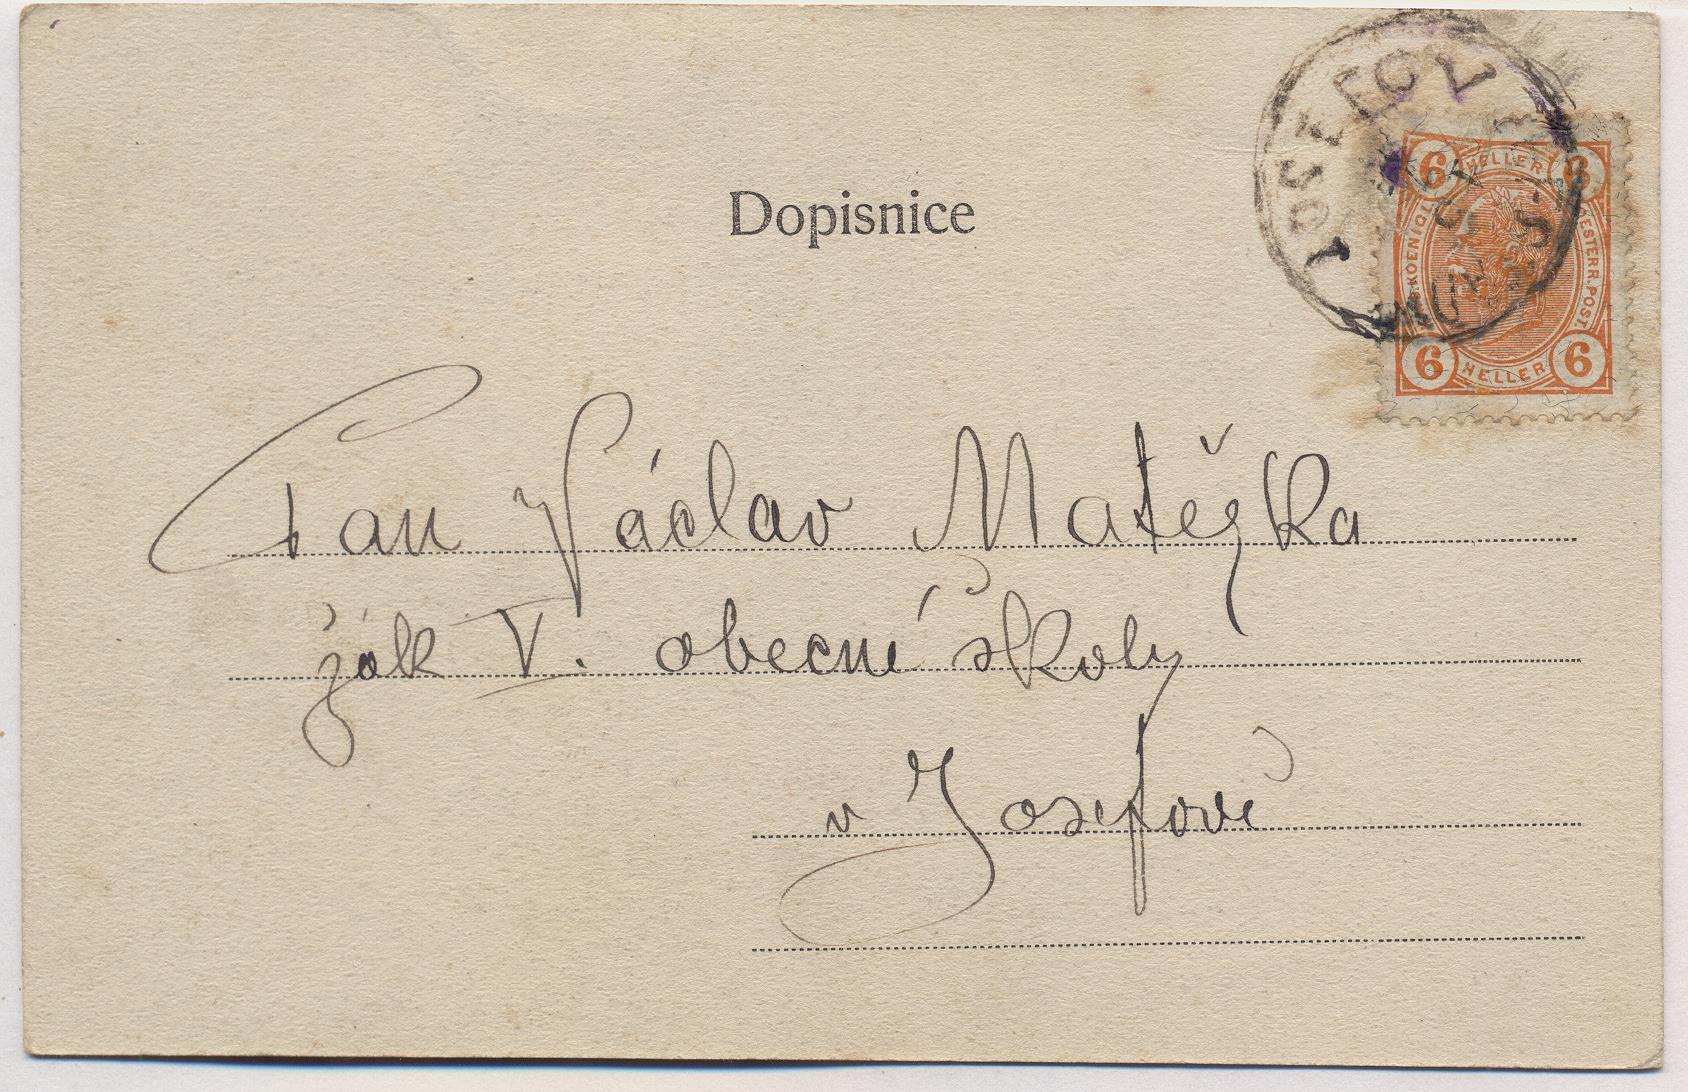 Dopisnice
6 HELLER 6
KOENIGL.
OESTERR. POST.
6 HELLER 6
Pan Václav Matěska
žák V. obecné školy
v Josefově